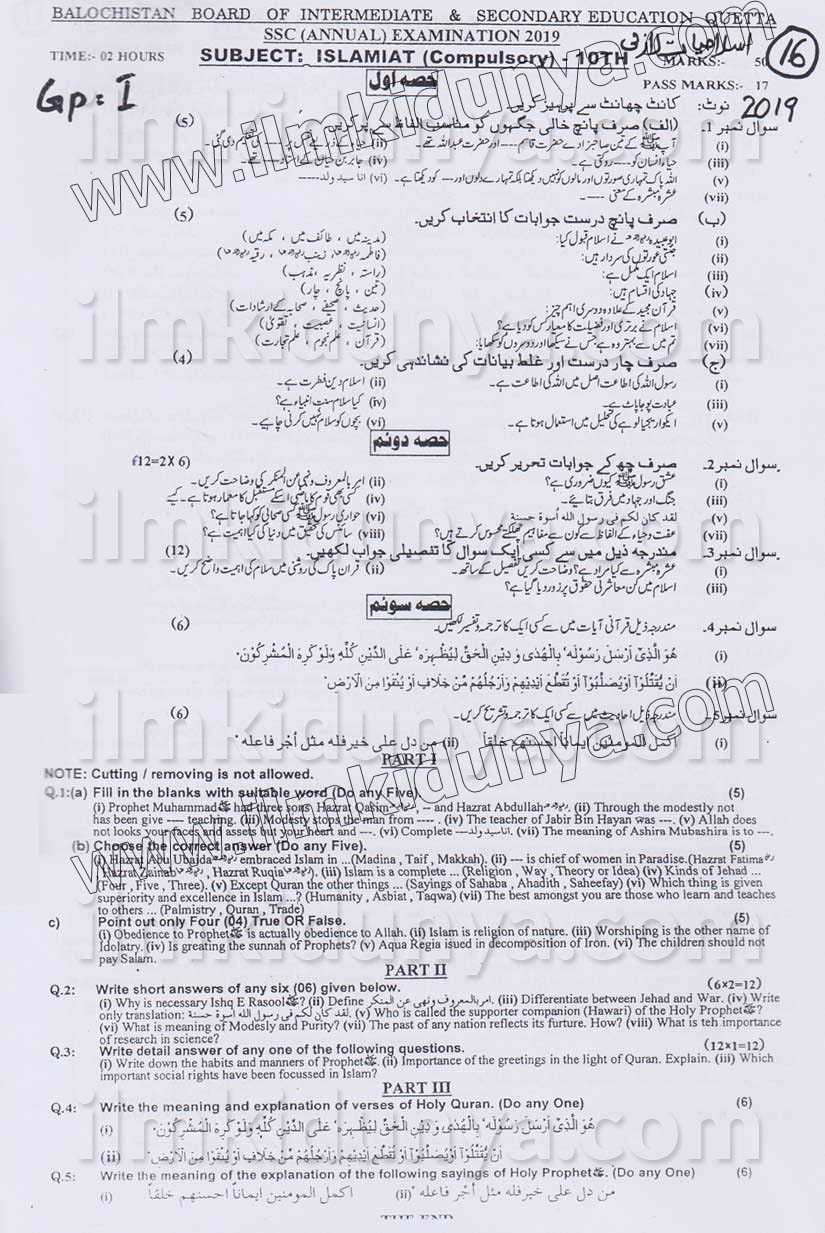 BALOCHISTAN BOARD OF INTERMEDIATE & SECONDARY EDUCATION QUETTA
SSC (ANNUAL) EXAMINATION 2019
اسلامیات لازمی
16
TIME:- 02 HOURS SUBJECT: ISLAMIAT (Compulsory) - 10TH MARKS:- 50
PASS MARKS:- 17
Gp: I
2019
حصہ اول
نوٹ: کانٹ چھانٹ سے پرہیز کریں۔
سوال نمبر 1۔ (الف) صرف پانچ خالی جگہوں کو مناسب الفاظ سے پر کریں۔ (5)
(i) آپﷺ کے تین صاحبزادے حضرت قاسم ----- اور حضرت عبداللہ تھے۔ (ii) حیاء کے ذریعے نفس پر ---- کی تعلیم دی گئی۔
(iii) حیاء انسان کو ---- روکتی ہے۔ (iv) جابر بن حیان کے استاد ---- تھے۔
(v) اللہ پاک تمہاری صورتوں اور مالوں کو نہیں دیکھتا بلکہ تمہارے دلوں اور --- کو دیکھتا ہے۔ (vi) انا سید ولد -----
(vii) عشرہ مبشرہ کے معنی ----۔
(ب) صرف پانچ درست جوابات کا انتخاب کریں۔ (5)
(i) ابو عبیدہ نے اسلام قبول کیا: (مدینہ میں ، طائف میں ، مکہ میں)
(ii) جنتی عورتوں کی سردار ہیں: (فاطمہ ، زینب ، رقیہ)
(iii) اسلام ایک مکمل ہے: (راستہ ، نظریہ ، مذہب)
(iv) جہاد کی اقسام ہیں: (تین ، پانچ ، چار)
(v) قرآن مجید کے علاوہ دوسری اہم چیز: (حدیث ، صحیفے ، صحابہ کے ارشادات)
(vi) اسلام نے برتری اور فضیلت کا معیار کس کو دیا ہے؟ (انسانیت ، عصبیت ، تقویٰ)
(vii) تم میں سے بہتر وہ ہے جس نے سیکھا اور دوسروں کو سکھایا: (قرآن ، علم نجوم ، علم تجارت)
(ج) صرف چار درست اور غلط بیانات کی نشاندہی کریں۔ (4)
(i) رسول اللہ کی اطاعت اصل میں اللہ کی اطاعت ہے۔ (ii) اسلام دین فطرت ہے۔
(iii) عبادت پوجا پاٹ ہے۔ (iv) کیا سلام سنت انبیاء ہے؟
(v) ایکوا ریجیا لوہے کی تحلیل میں استعمال ہوتا ہے۔ (vi) بچوں کو سلام نہیں کرنی چاہیے۔
حصہ دوئم
سوال نمبر 2۔ صرف چھ کے جوابات تحریر کریں۔ (12=2X6)
(i) عشق رسولﷺ کیوں ضروری ہے؟ (ii) امر بالمعروف ونہی عن المنکر کی وضاحت کریں۔
(iii) جنگ اور جہاد میں فرق بتائیے۔ (iv) کسی بھی قوم کا ماضی اسکے مستقبل کا معمار ہوتا ہے۔ کیسے
(v) لقد كان لكم فى رسول الله أسوة حسنة (vi) حواری رسولﷺ کس صحابی کو کہا جاتا ہے؟
(vii) عفت و حیاء کے الفاظ سے کون سے مفاہیم جھلکتے محسوس کرتے ہیں؟ (viii) سائنس کی تحقیق میں دنیا کی کیا اہمیت ہے؟
سوال نمبر 3۔ مندرجہ ذیل میں سے کسی ایک سوال کا تفصیلی جواب لکھیں۔ (12)
(i) عشرہ مبشرہ سے کیا مراد ہے؟ وضاحت کریں تفصیل کے ساتھ۔ (ii) قرآن پاک کی روشنی میں سلام کی اہمیت واضح کریں۔
(iii) اسلام میں کن معاشرتی حقوق پر زور دیا گیا ہے؟
حصہ سوئم
سوال نمبر 4۔ مندرجہ ذیل قرآنی آیات میں سے کسی ایک کا ترجمہ و تفسیر لکھیں۔ (6)
(i) هُوَ الَّذِىْ اَرْسَلَ رَسُوْلَهٗ بِالْهُدٰى وَ دِيْنِ الْحَقِّ لِيُظْهِرَهٗ عَلَى الدِّيْنِ كُلِّهٖ وَلَوْ كَرِهَ الْمُشْرِكُوْنَ۔
(ii) اَنْ يُّقَتَّلُوْٓا اَوْ يُصَلَّبُوْٓا اَوْ تُقَطَّعَ اَيْدِيْهِمْ وَاَرْجُلُهُمْ مِّنْ خِلَافٍ اَوْ يُنْفَوْا مِنَ الْاَرْضِ۔
سوال نمبر 5۔ مندرجہ ذیل احادیث میں سے کسی ایک کا ترجمہ و تشریح کریں۔ (6)
(i) اكمل المومنين ايماناً احسنهم خلقاً (ii) من دل على خير فله مثل أجر فاعله
PART I
NOTE: Cutting / removing is not allowed.
Q.1:(a) Fill in the blanks with suitable word (Do any Five). (5)
(i) Prophet Muhammadﷺ had three sons, Hazrat Qasim, -- and Hazrat Abdullah. (ii) Through the modestly not
has been give ---- teaching. (iii) Modesty stops the man from ----. (iv) The teacher of Jabir Bin Hayan was ---. (v) Allah does
not looks your faces and assets but your heart and ---. (vi) Complete ---انا سید ولد. (vii) The meaning of Ashira Mubashira is to ---.
(b) Choose the correct answer (Do any Five). (5)
(i) Hazrat Abu Ubajda embraced Islam in ...(Madina , Taif , Makkah). (ii) --- is chief of women in Paradise.(Hazrat Fatima
, Hazrat Zainab , Hazrat Ruqia). (iii) Islam is a complete ... (Religion , Way , Theory or Idea) (iv) Kinds of Jehad ...
(Four , Five , Three). (v) Except Quran the other things ... (Sayings of Sahaba , Ahadith , Saheefay) (vi) Which thing is given
superiority and excellence in Islam ...? (Humanity , Asbiat , Taqwa) (vii) The best amongst you are those who learn and teaches
to others ... (Palmistry , Quran , Trade)
c) Point out only Four (04) True OR False. (5)
(i) Obedience to Prophetﷺ is actually obedience to Allah. (ii) Islam is religion of nature. (iii) Worshiping is the other name of
Idolatry. (iv) Is greating the sunnah of Prophets? (v) Aqua Regia isued in decomposition of Iron. (vi) The children should not
pay Salam.
PART II
Q.2: Write short answers of any six (06) given below. (6x2=12)
(i) Why is necessary Ishq E Rasoolﷺ? (ii) Define امر بالمعروف ونهى عن المنكر. (iii) Differentiate between Jehad and War. (iv) Write
only translation: لقد كان لكم فى رسول الله أسوة حسنة. (v) Who is called the supporter companion (Hawari) of the Holy Prophetﷺ?
(vi) What is meaning of Modesly and Purity? (vii) The past of any nation reflects its furture. How? (viii) What is teh importance
of research in science?
Q.3: Write detail answer of any one of the following questions. (12x1=12)
(i) Write down the habits and manners of Prophetﷺ. (ii) Importance of the greetings in the light of Quran. Explain. (iii) Which
important social rights have been focussed in Islam?
PART III
Q.4: Write the meaning and explanation of verses of Holy Quran. (Do any One) (6)
(i) هُوَ الَّذِىْ اَرْسَلَ رَسُوْلَهٗ بِالْهُدٰى وَ دِيْنِ الْحَقِّ لِيُظْهِرَهٗ عَلَى الدِّيْنِ كُلِّهٖ وَلَوْ كَرِهَ الْمُشْرِكُوْنَ۔
(ii) اَنْ يُّقَتَّلُوْٓا اَوْ يُصَلَّبُوْٓا اَوْ تُقَطَّعَ اَيْدِيْهِمْ وَاَرْجُلُهُمْ مِّنْ خِلَافٍ اَوْ يُنْفَوْا مِنَ الْاَرْضِ۔
Q.5: Write the meaning of the explanation of the following sayings of Holy Prophetﷺ. (Do any One) (6)
(i) اكمل المومنين ايماناً احسنهم خلقاً (ii) من دل على خير فله مثل أجر فاعله
THE END
www.ilmkidunya.com
ilmkidunya.com